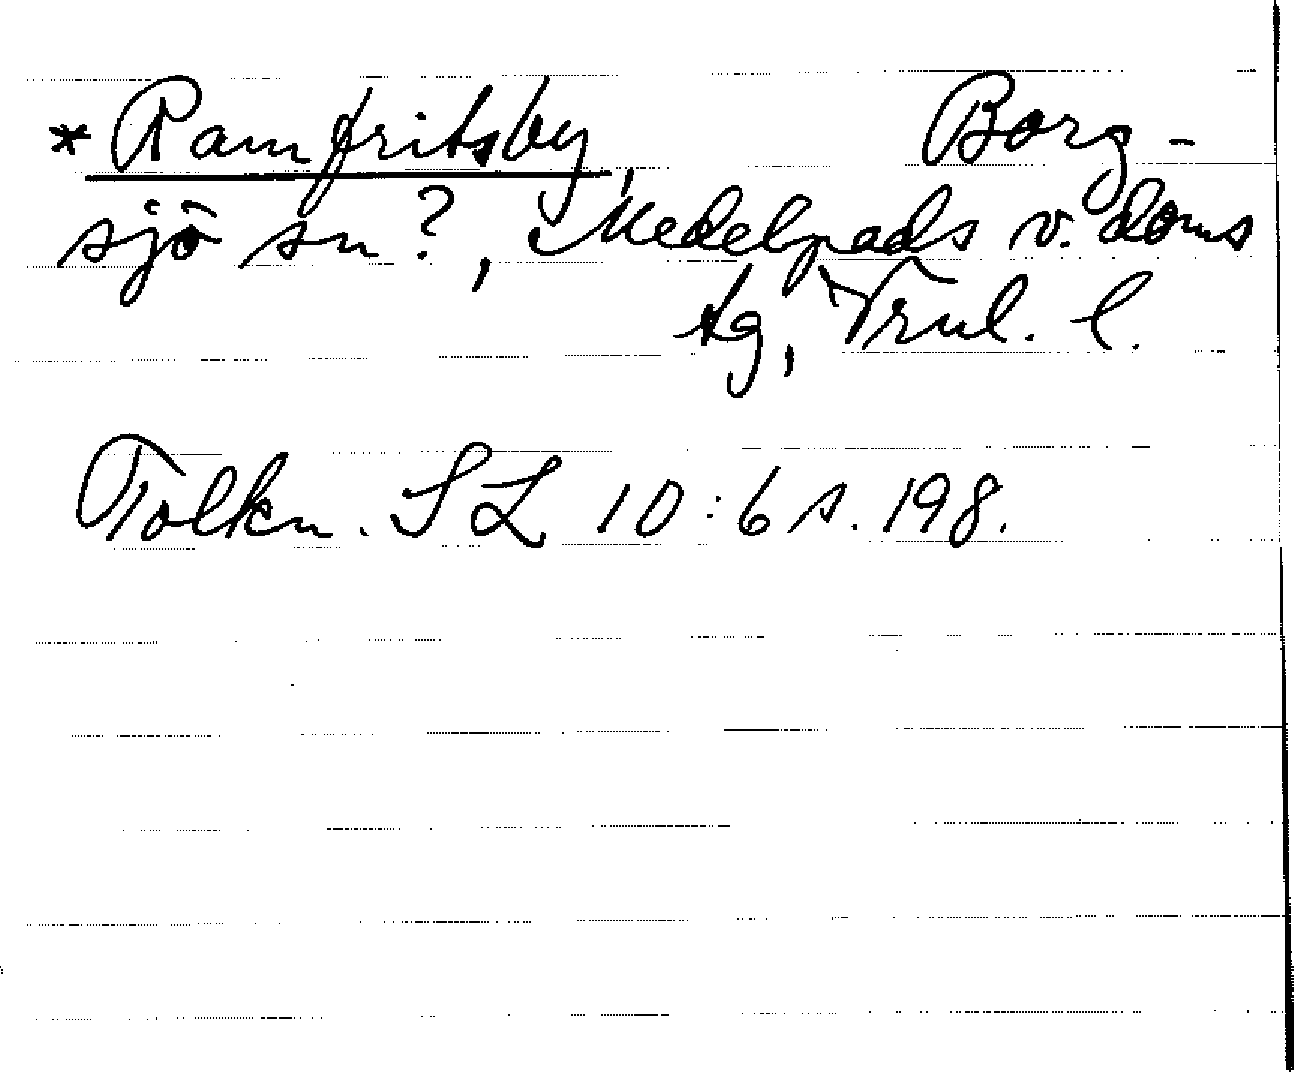 * Ramfritsby, Borg-
sjö sn?, Medelpads v. doms
tg, Vrnl. l.
Tolkn. SL 10:6 s. 198.